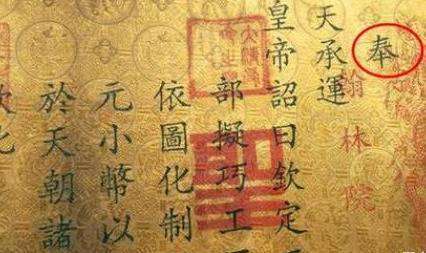 奉
翰林院
天承運
皇帝詔曰欽定
部擬巧工
依圖化制
元小幣以
於天朝諸